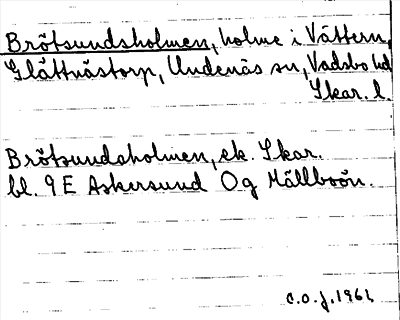 Brötsundsholmen, holme i Vättern,
Glättnästorp, Undenäs sn, Vadsbo hd
Skar. l.
Brötsundsholmen, ek. Skar.
bl. 9 E Askersund Og Mällboön.
C.O.J. 1961